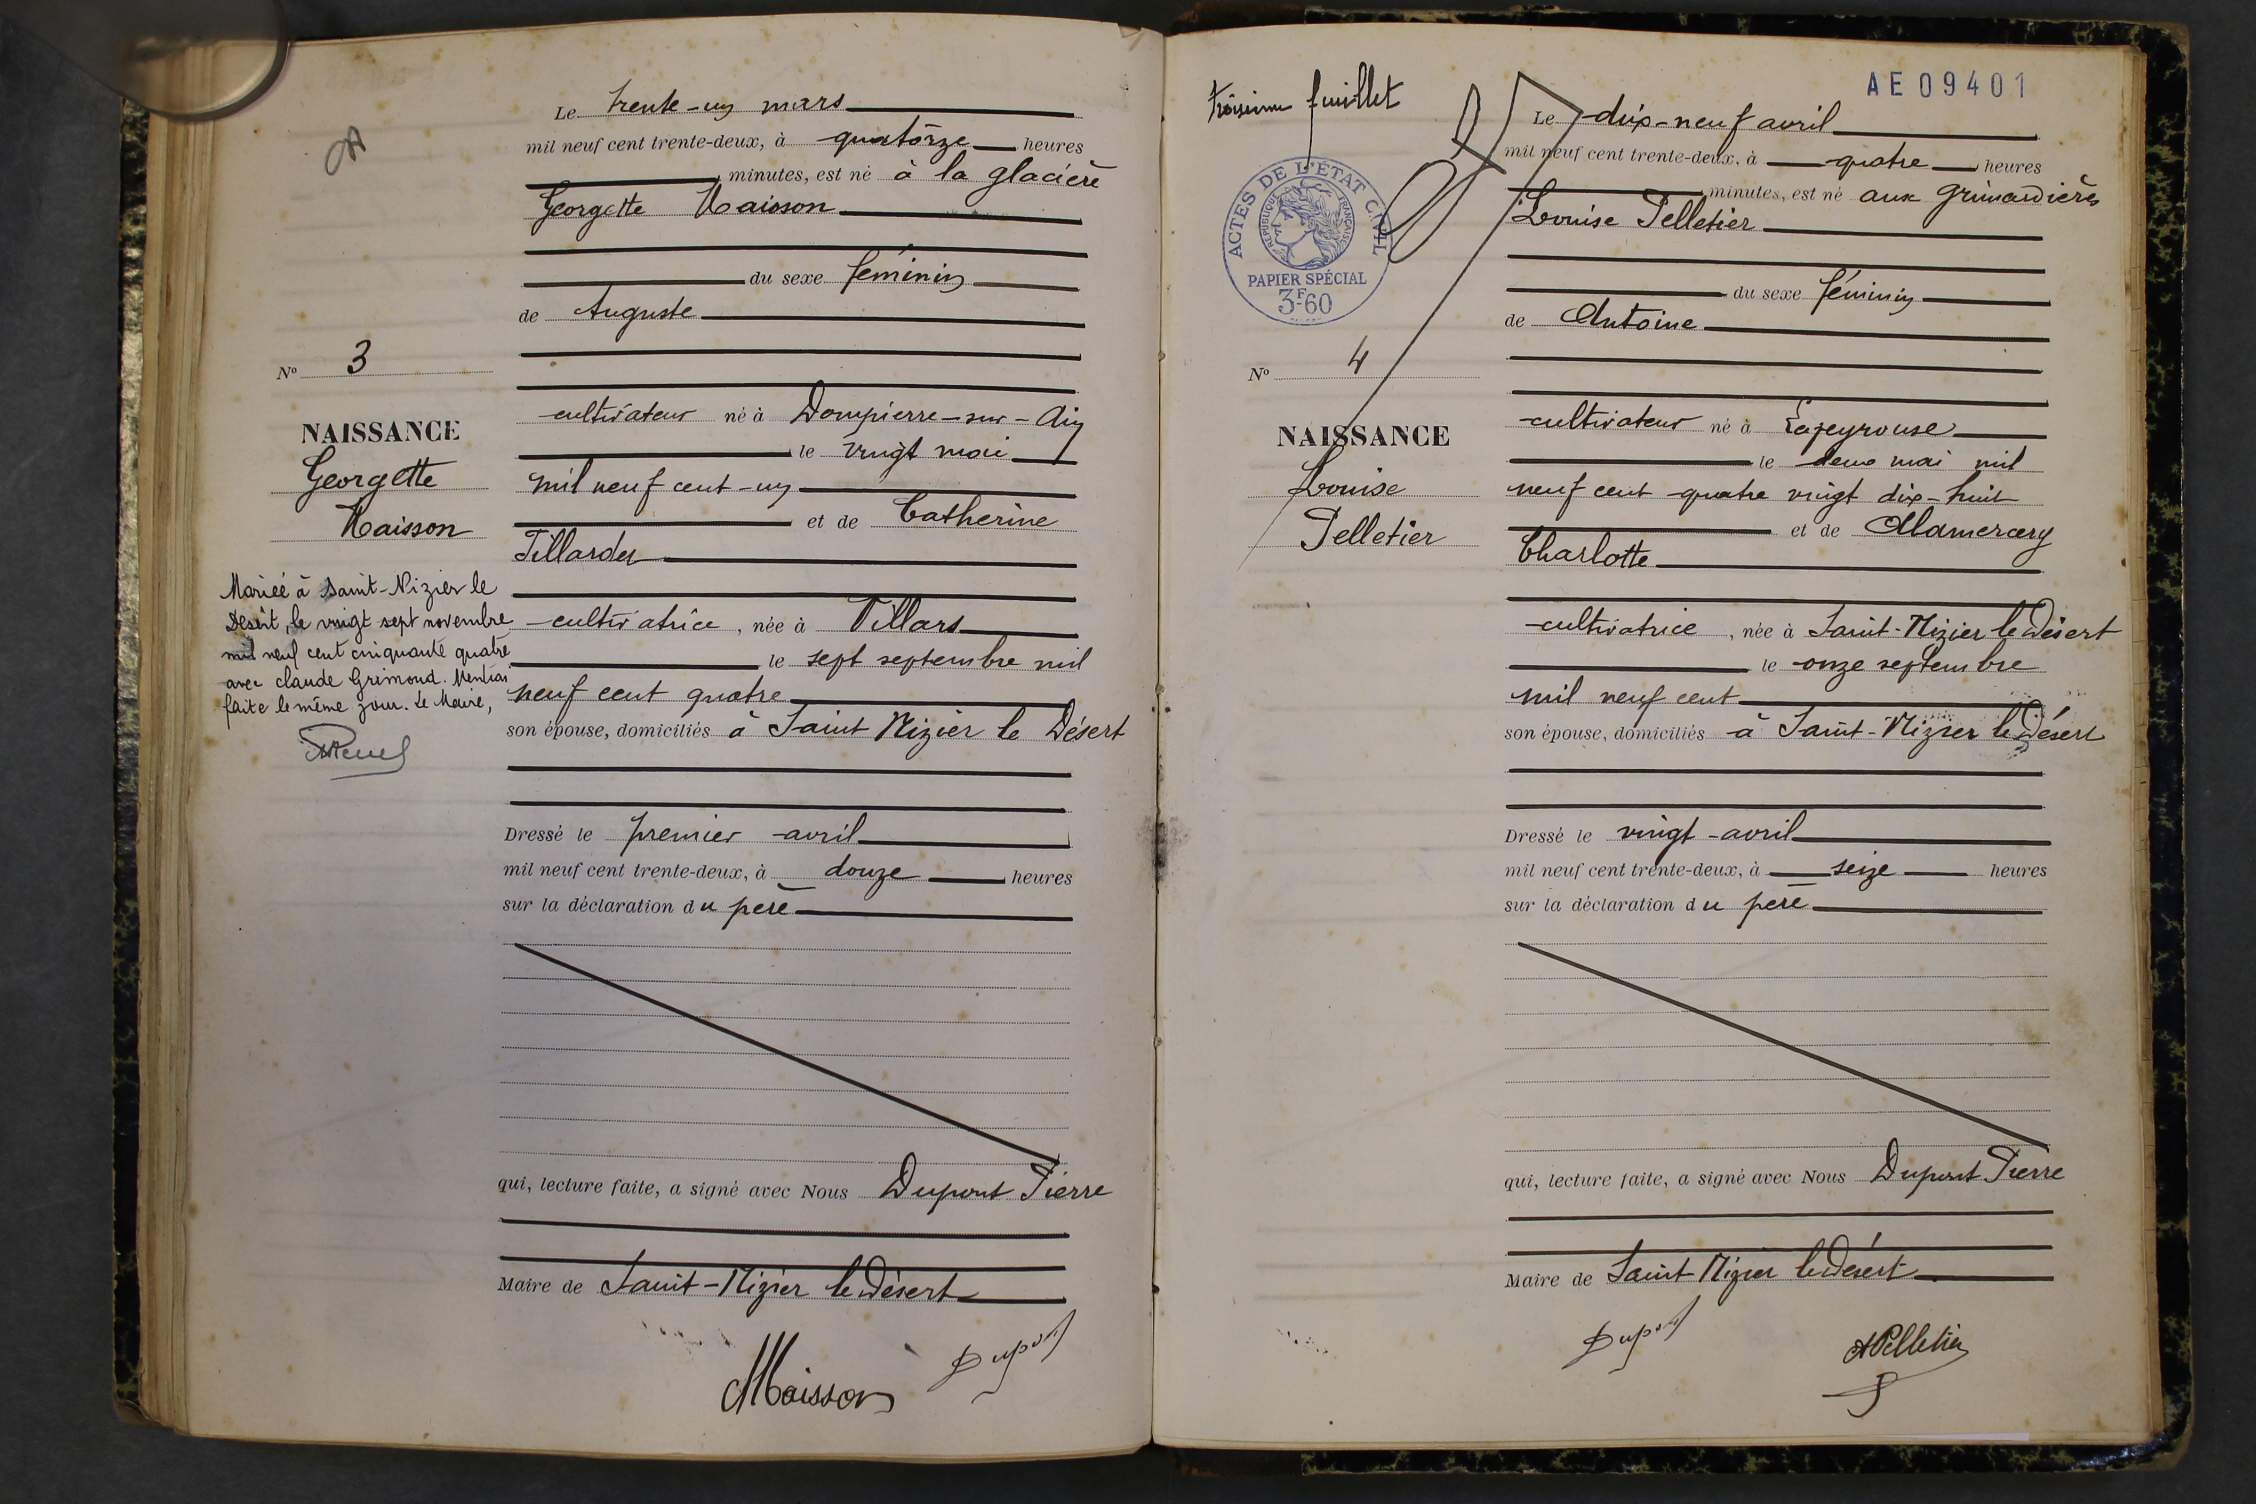 Le trente-un mars
mil neuf cent trente-deux, à quatorze heures
minutes, est né à la glacière
Georgette Maisson
du sexe féminin
de Auguste
No 3
cultivateur né à Dompierre-sur-Ain
NAISSANCE
le vingt mai
Georgette
mil neuf cent-un
et de Catherine
Maisson
Tillarder
Mariée à Saint-Nizier le
Désert, le vingt sept novembre
mil neuf cent cinquante quatre
avec Claude Grimond. Mention
faite le même jour. Le Maire,
cultivatrice, née à Villars
le sept septembre mil
neuf cent quatre
son épouse, domiciliés à Saint Nizier le Désert
Dressé le premier avril
mil neuf cent trente-deux, à douze heures
sur la déclaration du père
qui, lecture faite, a signé avec Nous Dupont Pierre
Maire de Saint-Nizier le Désert
Maisson
Dupont
troisième feuillet
AE09401
Le dix-neuf avril
mil neuf cent trente-deux, à quatre heures
minutes, est né aux Grimaudières
Louise Pelletier
ACTES DE L'ÉTAT CIVIL
RÉPUBLIQUE FRANÇAISE
PAPIER SPÉCIAL
3F60
du sexe féminin
de Antoine
No 4
cultivateur né à Lapeyrouse
NAISSANCE
le deux mai mil
Louise
neuf cent quatre vingt dix-huit
et de Mamercery
Pelletier
Charlotte
cultivatrice, née à Saint-Nizier le Désert
le onze septembre
mil neuf cent
son épouse, domiciliés à Saint-Nizier le Désert
Dressé le vingt avril
mil neuf cent trente-deux, à seize heures
sur la déclaration du père
qui, lecture faite, a signé avec Nous Dupont Pierre
Maire de Saint Nizier le Désert
Dupont
A Pelletier